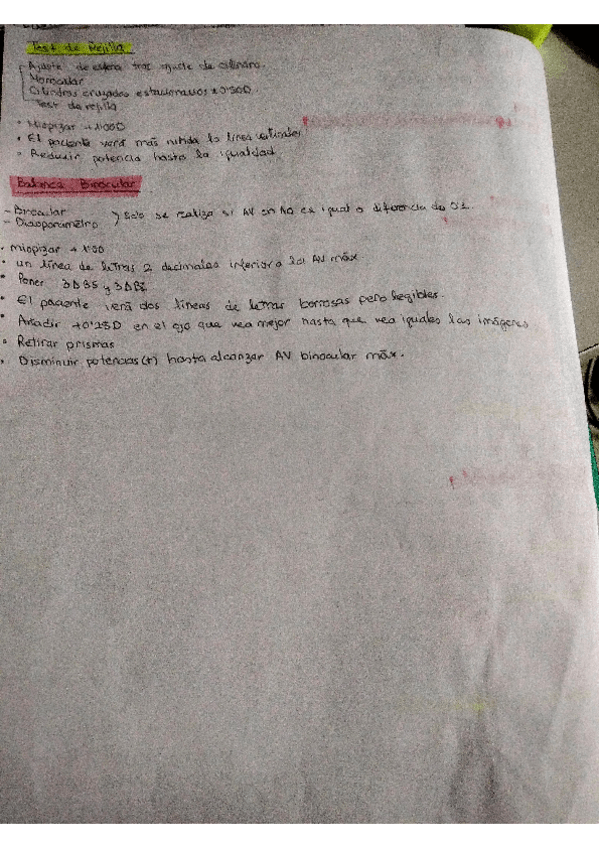 Test de Rejilla
Ajuste de esfera tras ajuste de cilindro.
Monocular
Cilindros cruzados estacionarios ±0'50D
Test de rejilla
• Miopizar +1'00D
• El paciente verá más nitida la línea verticales
• Reducir potencia hasta la igualdad
Balance Binocular
- Biocular
- Diasporámetro } Solo se realiza si AV en AO es igual o diferencia de 0'1.
• miopizar +1'00
• un línea de letras 2 decimales inferior a la AV máx
• Poner 3Δ BS y 3Δ BI
• El paciente verá dos líneas de letras borrosas pero legibles.
• Añadir +0'25D en el ojo que vea mejor hasta que vea iguales las imágenes
• Retirar prismas
• Disminuir potencias (+) hasta alcanzar AV binocular máx.